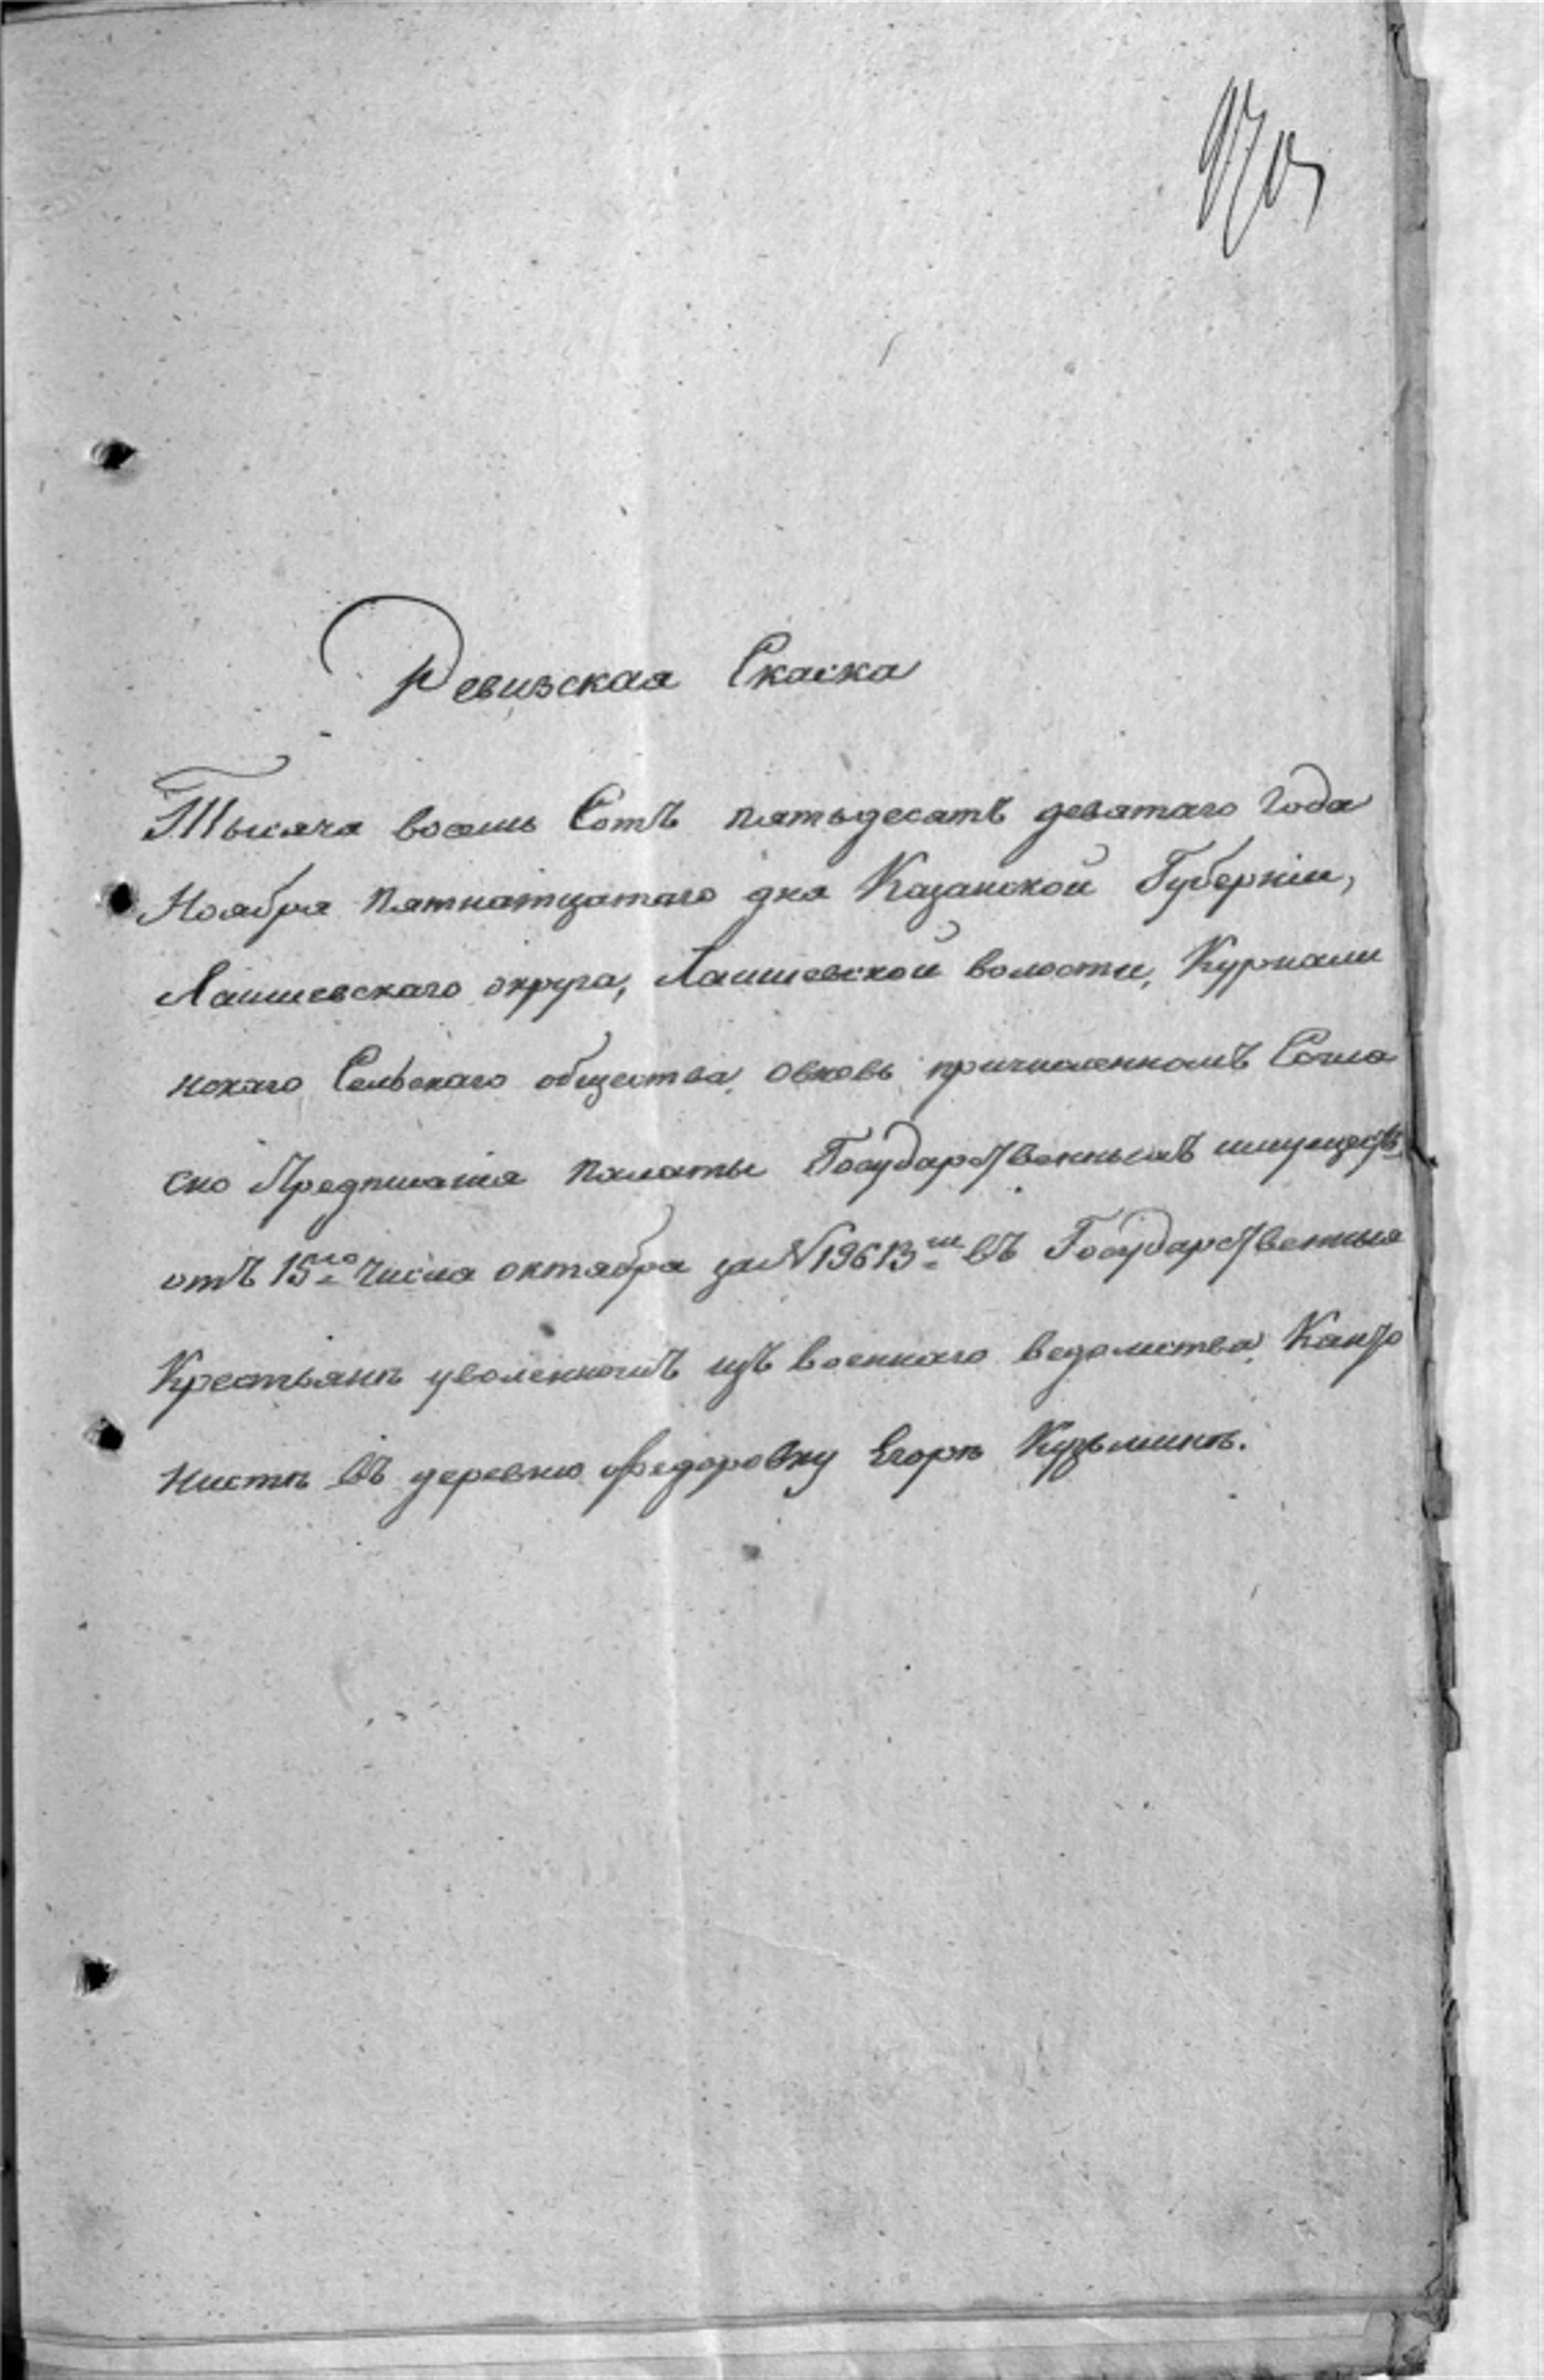 970
Ревизская Скаска
Тысяча восемь Сотъ пятьдесятъ девятаго Года
Ноября пятнатцатаго дня Казанской Губерніи,
Лаишевскаго округа, Лаишевской волости, Курнали
нскаго Сельскаго общества, овновь причисленномъ Согла
сно Предписанія палаты Государственныхъ имуществъ
отъ 15го Числа октября за № 19613м въ Государственныя
Крестьянъ уволенномъ изъ военнаго ведомства, Канто
нистъ въ деревню Федоровку Егоръ Кузьминъ.